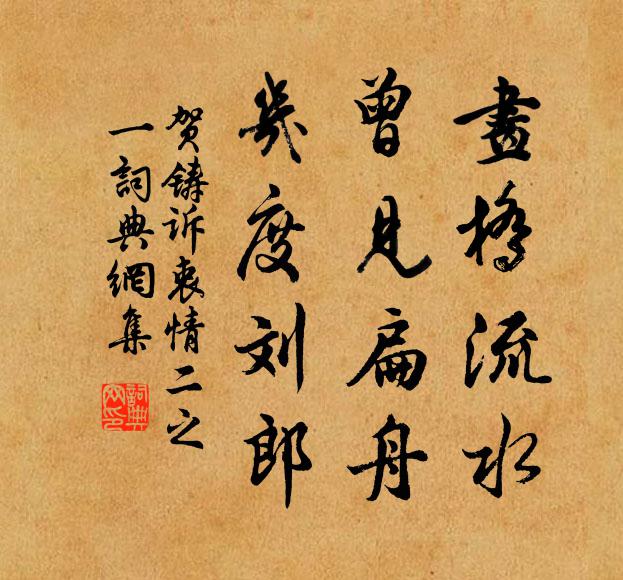 畫橋流水
曾見扁舟
幾度刘郎
贺鑄訴衷情二之
一詞典網集
詞典网印